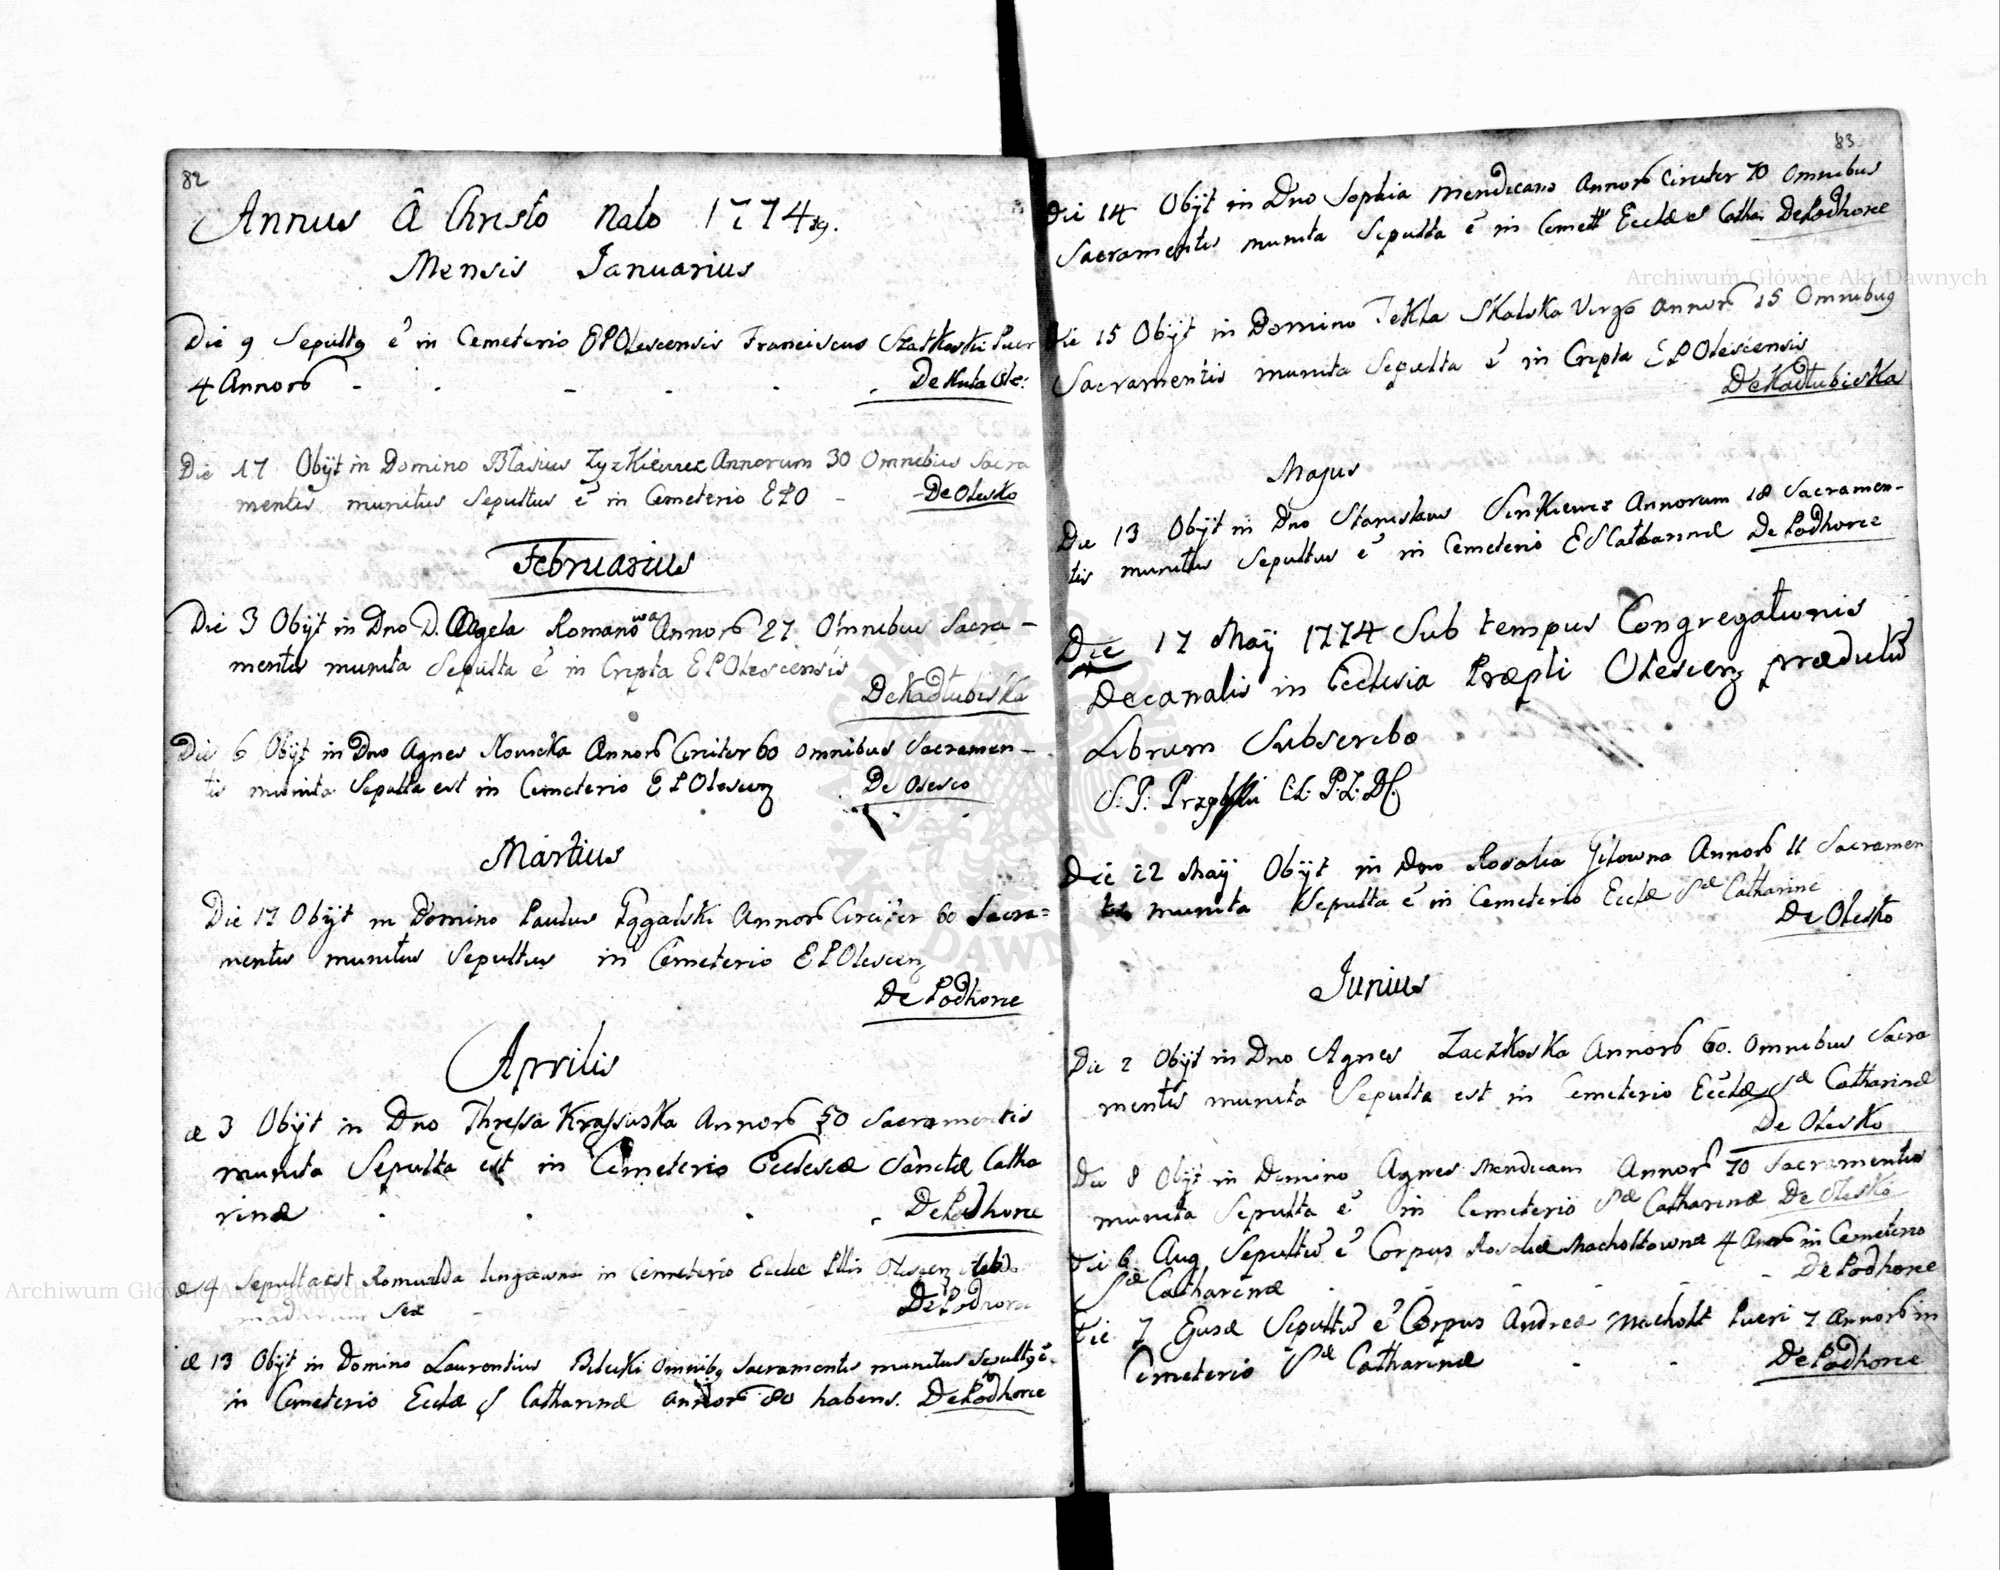 82
Annus â Christo Nato 1774tg.
Mensis Januarius
Die 9 Sepultg ē in Cemeterio EPOlescensis Franciscus Szatkoski Puer
4 Annorō - - - - - De Huta Ole:
Die 17 Obijt in Domino Błasius Zyzkiewicz Annorum 30 Omnibus Sacra
mentis munitus Sepultus ē in Cemeterio EPO - De Olesko
Februarius
Die 3 Obijt in Dno D. Angela Romanowa Annorō 27 Omnibus Sacra-
mentis munita Sepulta ē in Cripta EPOlescensis
De Kadłubiska
Die 6 Obijt in Dno Agnes Nowicka Annorō Circiter 60 omnibus Sacramen-
tis munita Sepulta est in Cemeterio EPOlescenz De Olesco
Martius
Die 17 Obijt in Domino Paulus Annorō Circiter 60 Sacra=
mentis munitus Sepultus in Cemeterio EPOlescenz
De Podhorce
Aprilis
e 3 Obijt in Dno Thressa Krassuska Annorō 50 Sacramentis
munita Sepulta est in Cemeterio Ecclesiæ Sanctæ Catha
rinæ - - - De Podhorce
e 9 Sepulta est Romualda in Cemeterio Eccliæ Pllis Olescenz Hebdo
madarum Sex De Podhorce
e 13 Obijt in Domino Laurentius Bilecki Omnibg Sacramentis munitus Sepultg ē
in Cemeterio Ecclæ S Catharinæ annorō 80 habens. De Podhorce
83
Die 14 Obijt in Dno Sophia Mendicans Annorō Circiter 70 Omnibus
Sacramentis munita Sepulta ē in Cemett Ecclæ S Catha: De Podhorce
Die 15 Obijt in Domino Tekla Skalska Virgo Annorō 15 Omnibug
Sacramentis munita Sepulta ē in Cripta EPOlescensis
De Kadłubiska
Majus
Die 13 Obijt in Dno Stanislaus Sinkiewicz Annorum 18 Sacramen-
tis munitus Sepultus ē in Cemeterio ESCatharinæ De Podhorce
Die 17 Maÿ 1774 Sub tempus Congregationis
Decanalis in Ecclesia Præpli Olescenz
Librum Subscribo
Die 22 Maÿ Obijt in Dno Rosalia Gilowna Annorō 11 Sacramen
tis munita Sepulta ē in Cemeterio Ecclæ Sæ Catharine
De Olesko
Junius
Die 2 Obijt in Dno Agnes Zaczkoska Annorō 60. Omnibus Sacra
mentis munita Sepulta est in Cemeterio Ecclæ Sæ Catharinæ
De Olesko
Die 8 Obijt in Domino Agnes Mendicans Annorō 70 Sacramentis
munita Sepulta ē in Cemeterio Sæ Catharinæ De Olesko
Die 6 Aug Sepultū ē Corpus Rosaliæ Macholtownæ 4 Anorō in Cemeterio
Sæ Catharinæ - - - - De Podhorce
Die 7 Ejusd Sepultū ē Corpus Andreæ Macholt Pueri 7 Annorō in
Cemeterio Sæ Catharinæ - - De Podhorce
Archiwum Główne Akt Dawnych
Archiwum Główne Akt Dawnych